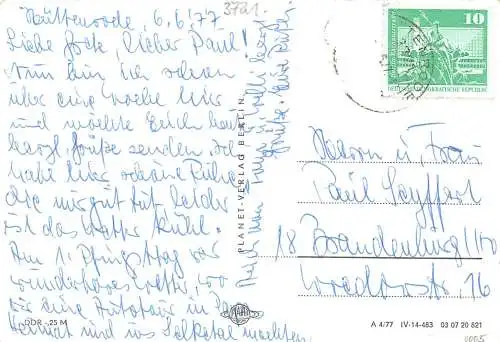 Hüttenrode 6.6.77
3721
Liebe Grete, lieber Paul!
Nun bin ich schon
über eine Woche hier
und möchte Euch heute
herzl. Grüße senden. Ich
habe hier schöne Ruhe
die mir gut tut leider
ist das Wetter kühl.
Am 1. Pfingsttag war
wunderbares Wetter, wo
wir eine Autofahrt in
und ins Selketal machten.
PLANET-VERLAG BERLIN
10
DEUTSCHE DEMOKRATISCHE REPUBLIK
Herrn u. Frau
Paul Seyffert
18 Brandenburg/
16
DDR -,25 M
A 4/77 IV-14-483 03 07 20 821
0005